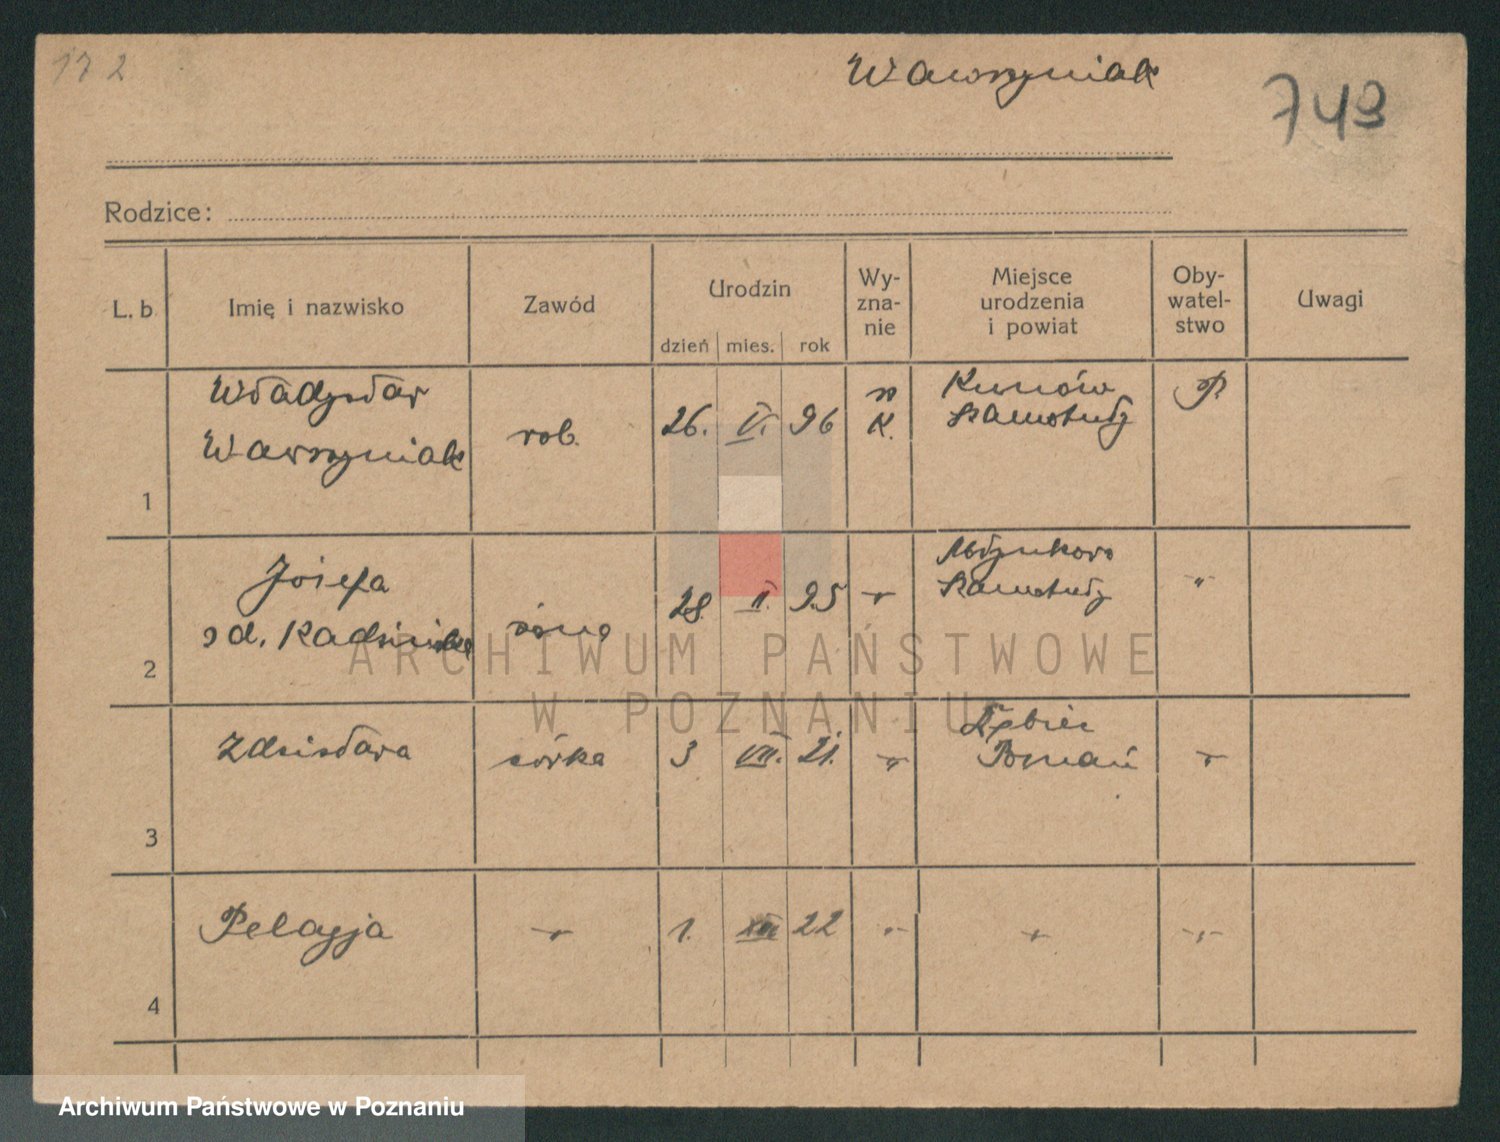 172
Wawrzyniak
743
Rodzice:
L. b
Imię i nazwisko
Zawód
Urodzin
dzień mies. rok
Wy-
zna-
nie
Miejsce
urodzenia
i powiat
Oby-
watel-
stwo
Uwagi
1
Władysław
Wawrzyniak
rob.
26. V. 96
rz
K.
Kunów
Szamotuły
P.
2
Józefa
z d. Radzińska
żona
28. II. 95
"
Szamotuły
"
3
Zdzisława
córka
3 VII. 21.
"
Dębiec
Poznań
"
4
Pelagja
"
1. XII 22
"
"
"
ARCHIWUM PAŃSTWOWE
W POZNANIU
Archiwum Państwowe w Poznaniu